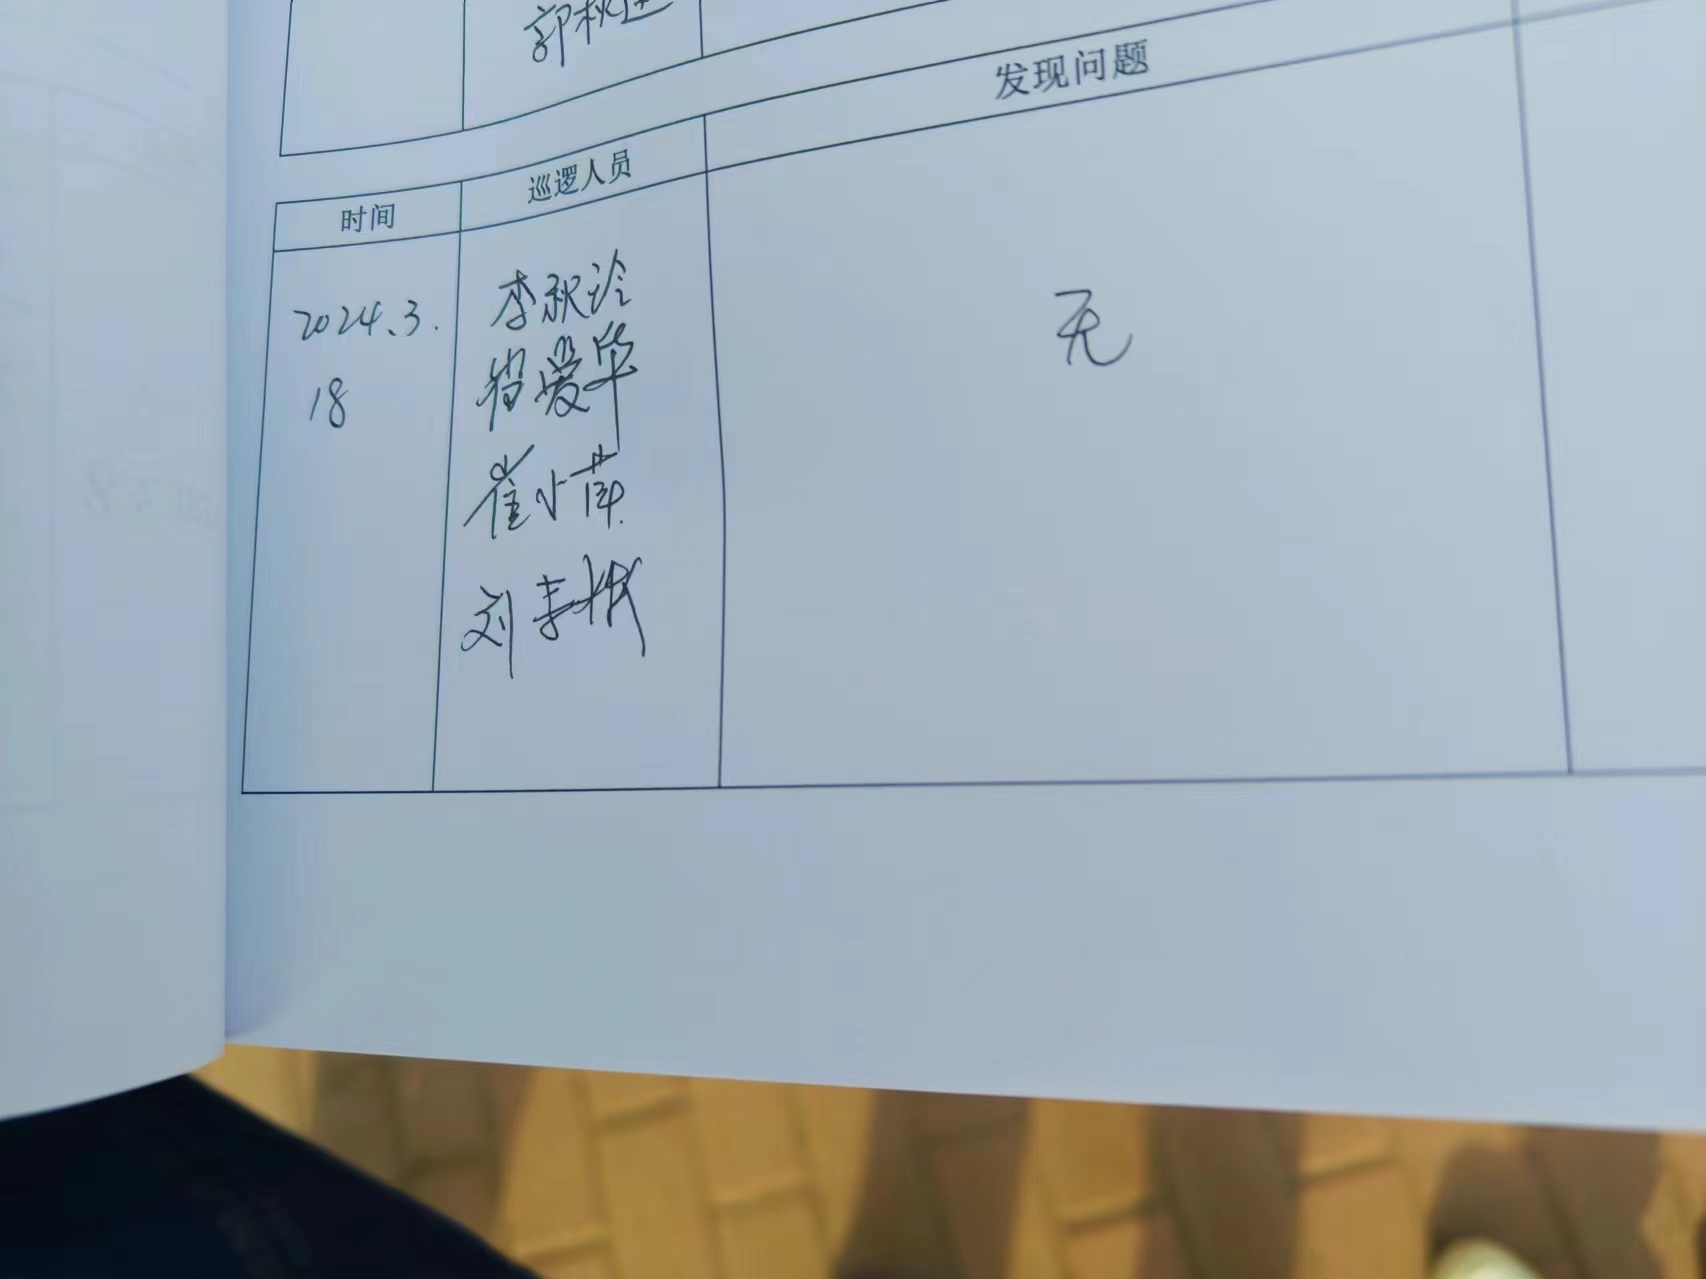 郭秋
时间 巡逻人员 发现问题
2024.3.
18
李秋玲
爱华
崔小苹
刘
无